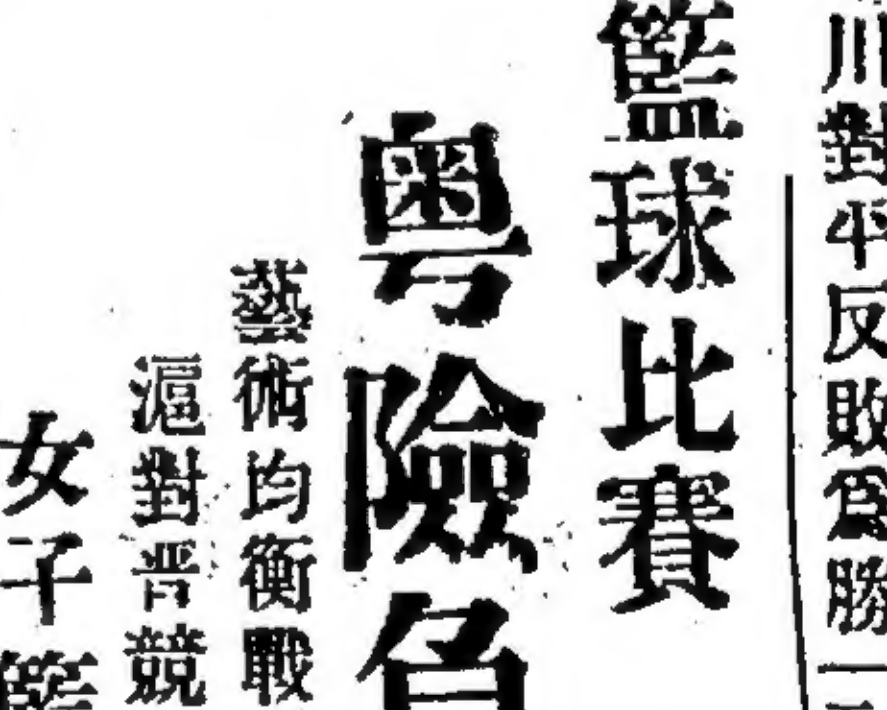 川對平反敗爲勝一
籃球比賽
粤險負
藝術均衡戰
滬對晋競
女子籃